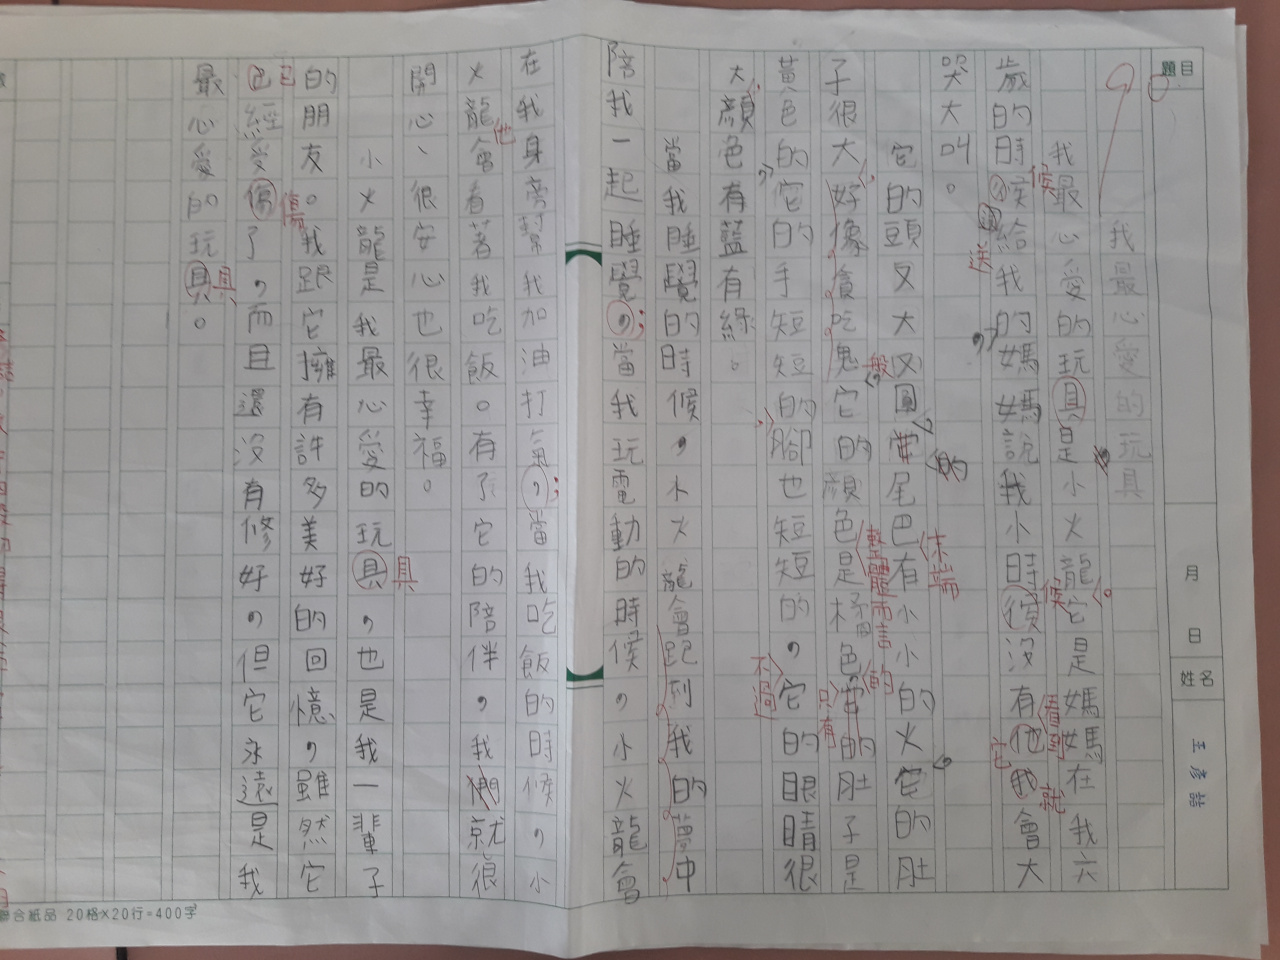 題目
月
日
姓名
王彥喆
90
我最心愛的玩具
我最心愛的玩具是小火龍它是媽媽在我六
歲的時候送給我的媽媽說我小時候沒有他我會大
哭大叫。
它的頭又大又圓它尾巴有小小的火它的肚
子很大好像貪吃鬼它的顏色是橘色它的肚子是
黃色的它的手短短的腳也短短的,它的眼睛很
大顏色有藍有綠。
當我睡覺的時候,小火龍會跑到我的夢中
陪我一起睡覺,當我玩電動的時候,小火龍會
在我身旁幫我加油打氣,當我吃飯的時候,小
火龍會看著我吃飯。有了它的陪伴,我們就很
開心、很安心也很幸福。
小火龍是我最心愛的玩具,也是我一輩子
的朋友。我跟它擁有許多美好的回憶,雖然它
已經受傷了,而且還沒有修好,但它永遠是我
最心愛的玩具。
候
送
。
候
看到
就
它
的
末端
般
整體而言
的
只有
不過
;
;
他
具
傷
已
具
聯合紙品 20格×20行=400字